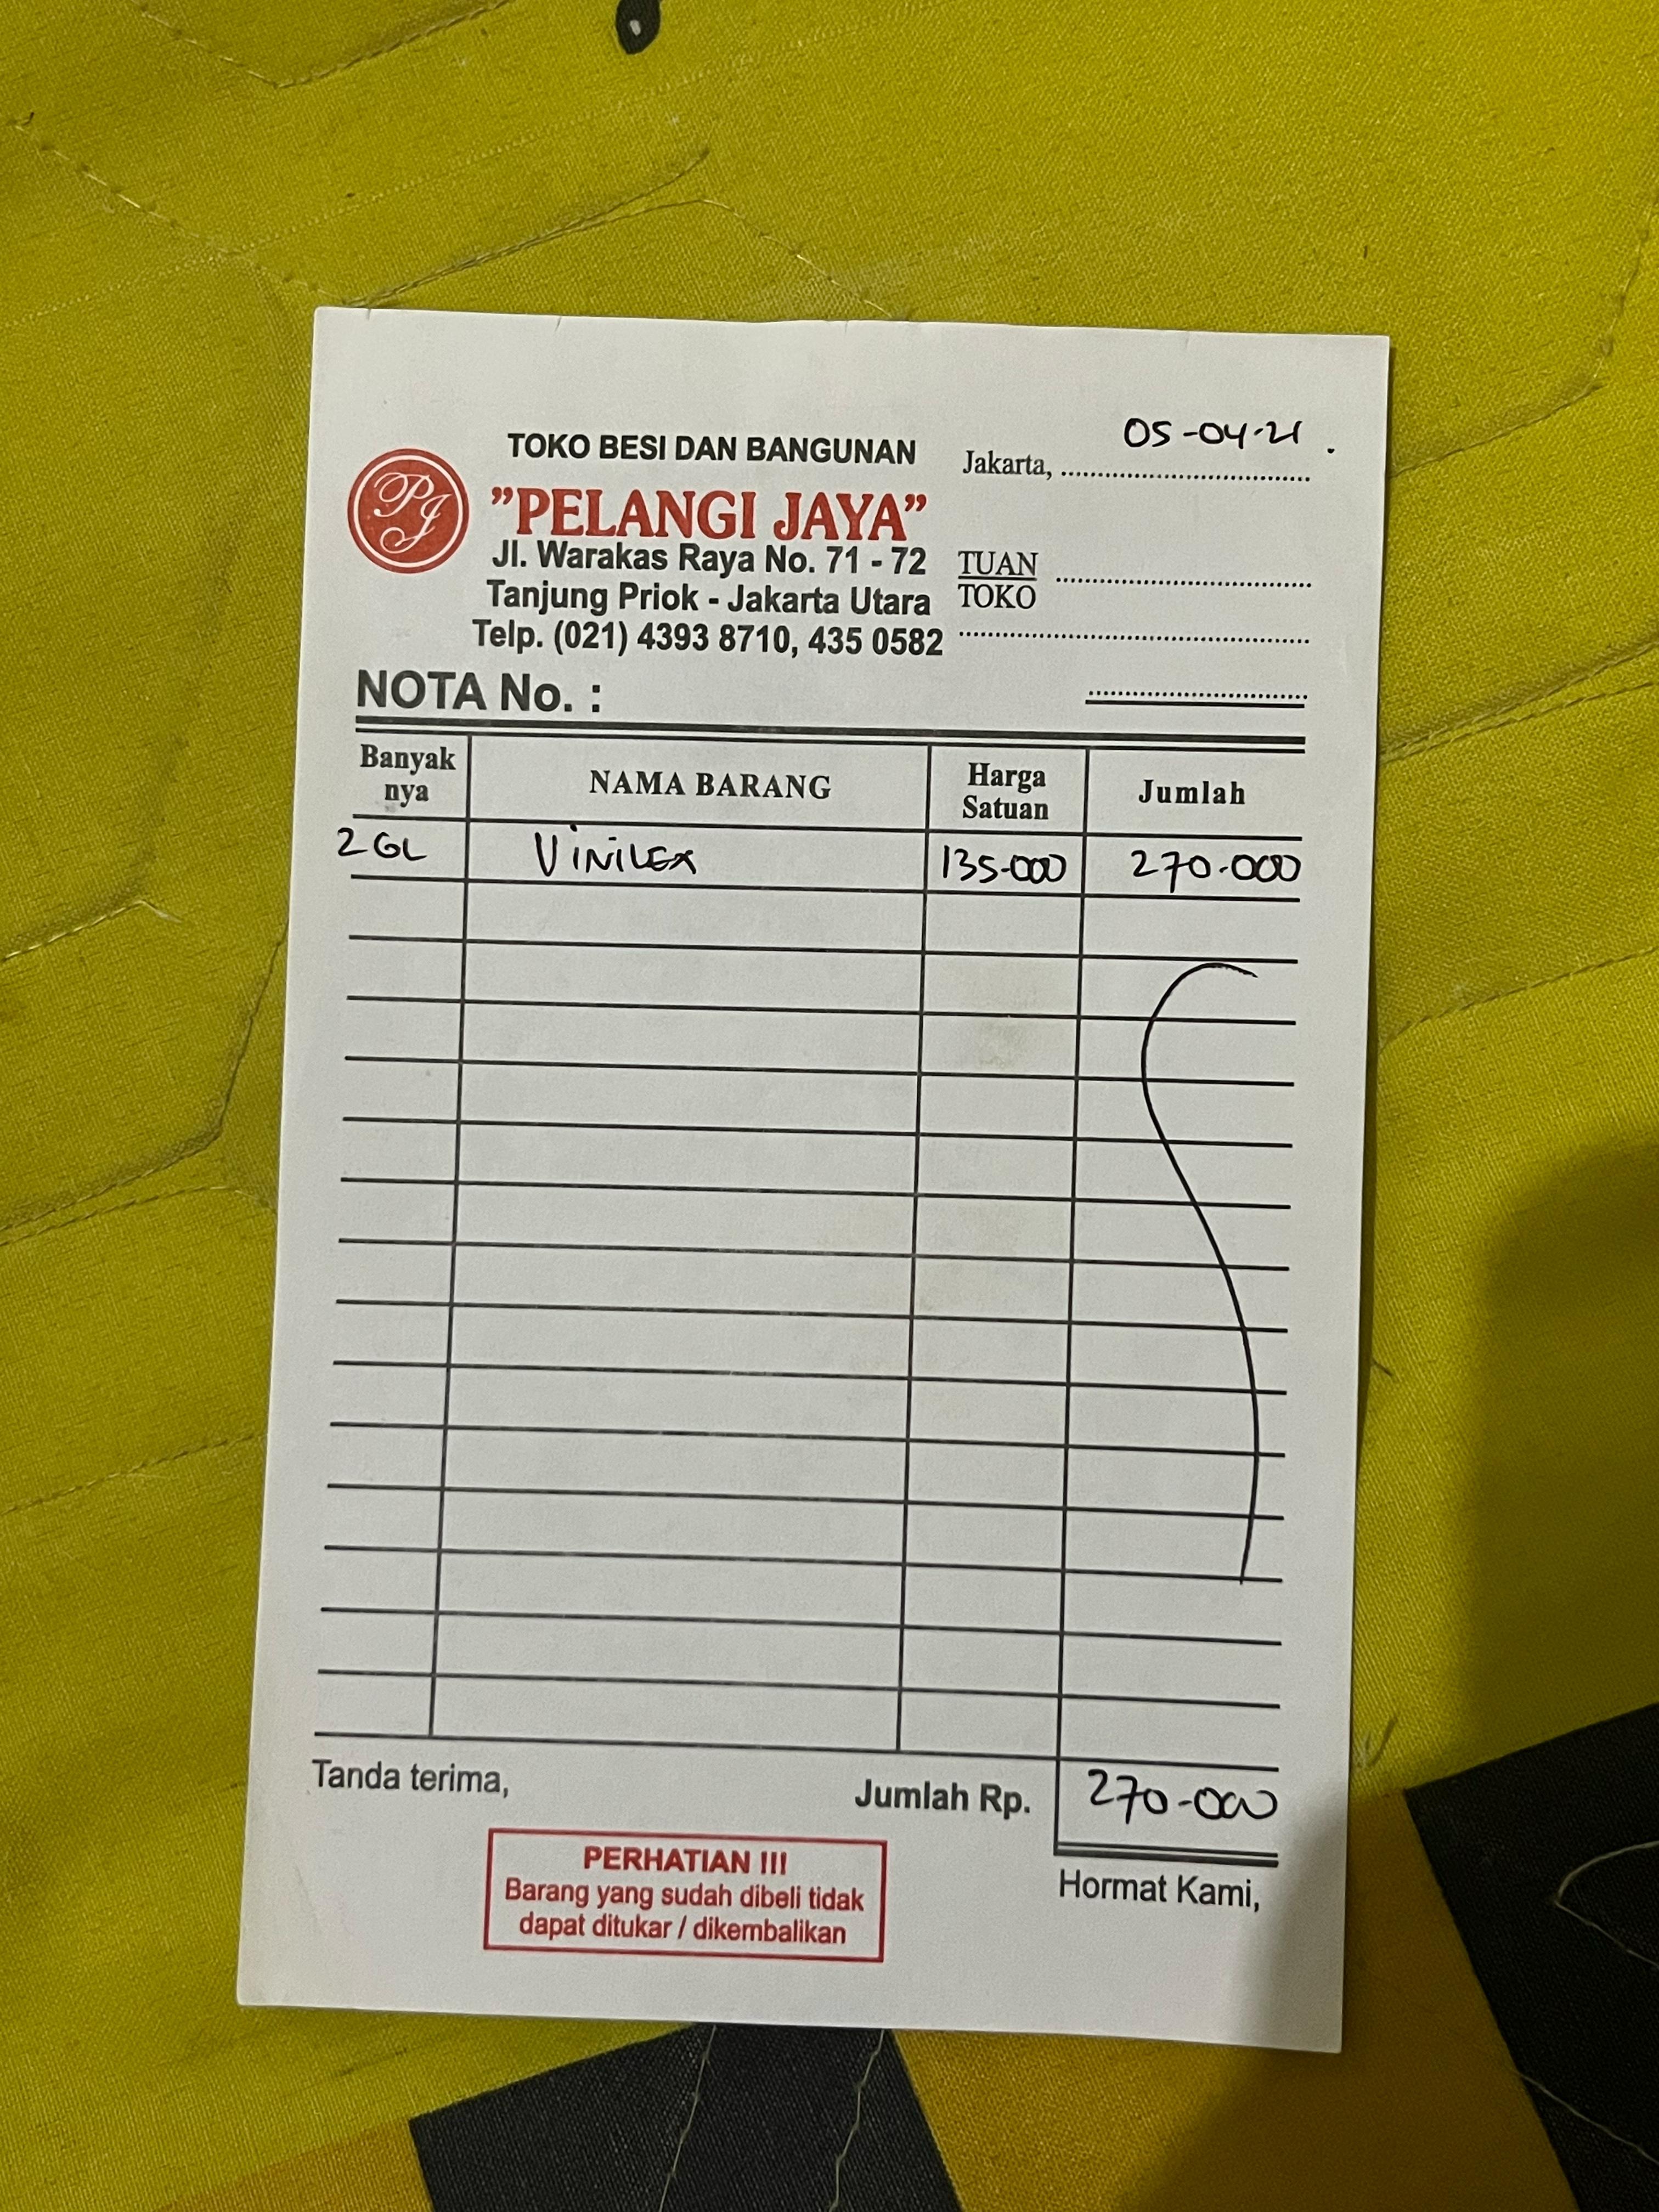 TOKO BESI DAN BANGUNAN
PJ
"PELANGI JAYA"
Jl. Warakas Raya No. 71 - 72
Tanjung Priok - Jakarta Utara
Telp. (021) 4393 8710, 435 0582
Jakarta, 05-04-21.
TUAN
TOKO
NOTA No. :
Banyak nya NAMA BARANG Harga Satuan Jumlah
2 GL Vinilex 135-000 270-000
Tanda terima, Jumlah Rp. 270-000
PERHATIAN !!!
Barang yang sudah dibeli tidak
dapat ditukar / dikembalikan
Hormat Kami,